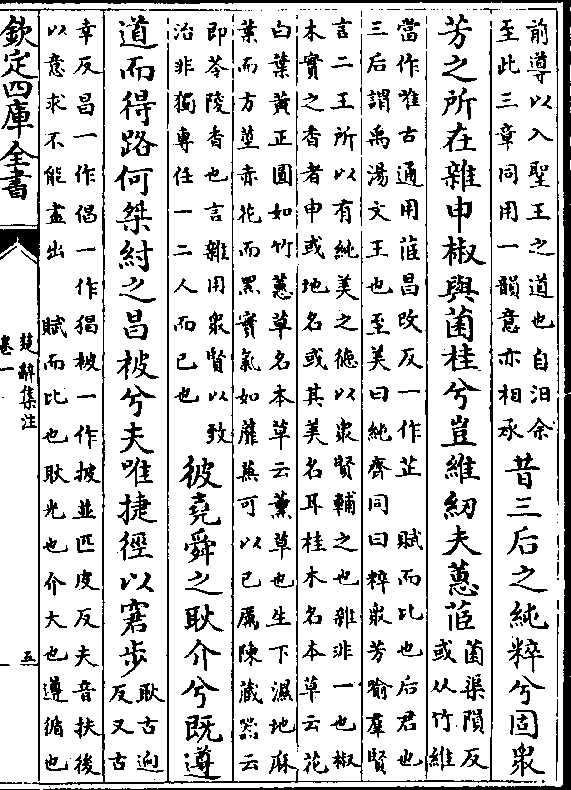 前導以入聖王之道也自汨余
至此三章同用一韻意亦相承
昔三后之純粹兮固衆
芳之所在雜申椒與菌桂兮豈維紉夫蕙茝
菌渠隕反
或从竹維
當作唯古通用茝昌改反一作芷　賦而比也后君也
三后謂禹湯文王也至美曰純齊同曰粹衆芳喻羣賢
言二王所以有純美之德以衆賢輔之也雜非一也椒
木實之香者申或地名或其美名耳桂木名本草云花
白葉黄正圓如竹蕙草名本草云薰草也生下濕地麻
葉而方莖赤花而黑實氣如蘼蕪可以已厲陳藏器云
即苓陵香也言雜用衆賢以致
治非獨專任一二人而已也
彼堯舜之耿介兮既遵
道而得路何桀紂之昌被兮夫唯捷徑以窘步
耿古迥
反又古
幸反昌一作倡一作猖被一作披並匹皮反夫音扶後
以意求不能盡出　賦而比也耿光也介大也遵循也
欽定四庫全書
楚辭集注
卷一
五